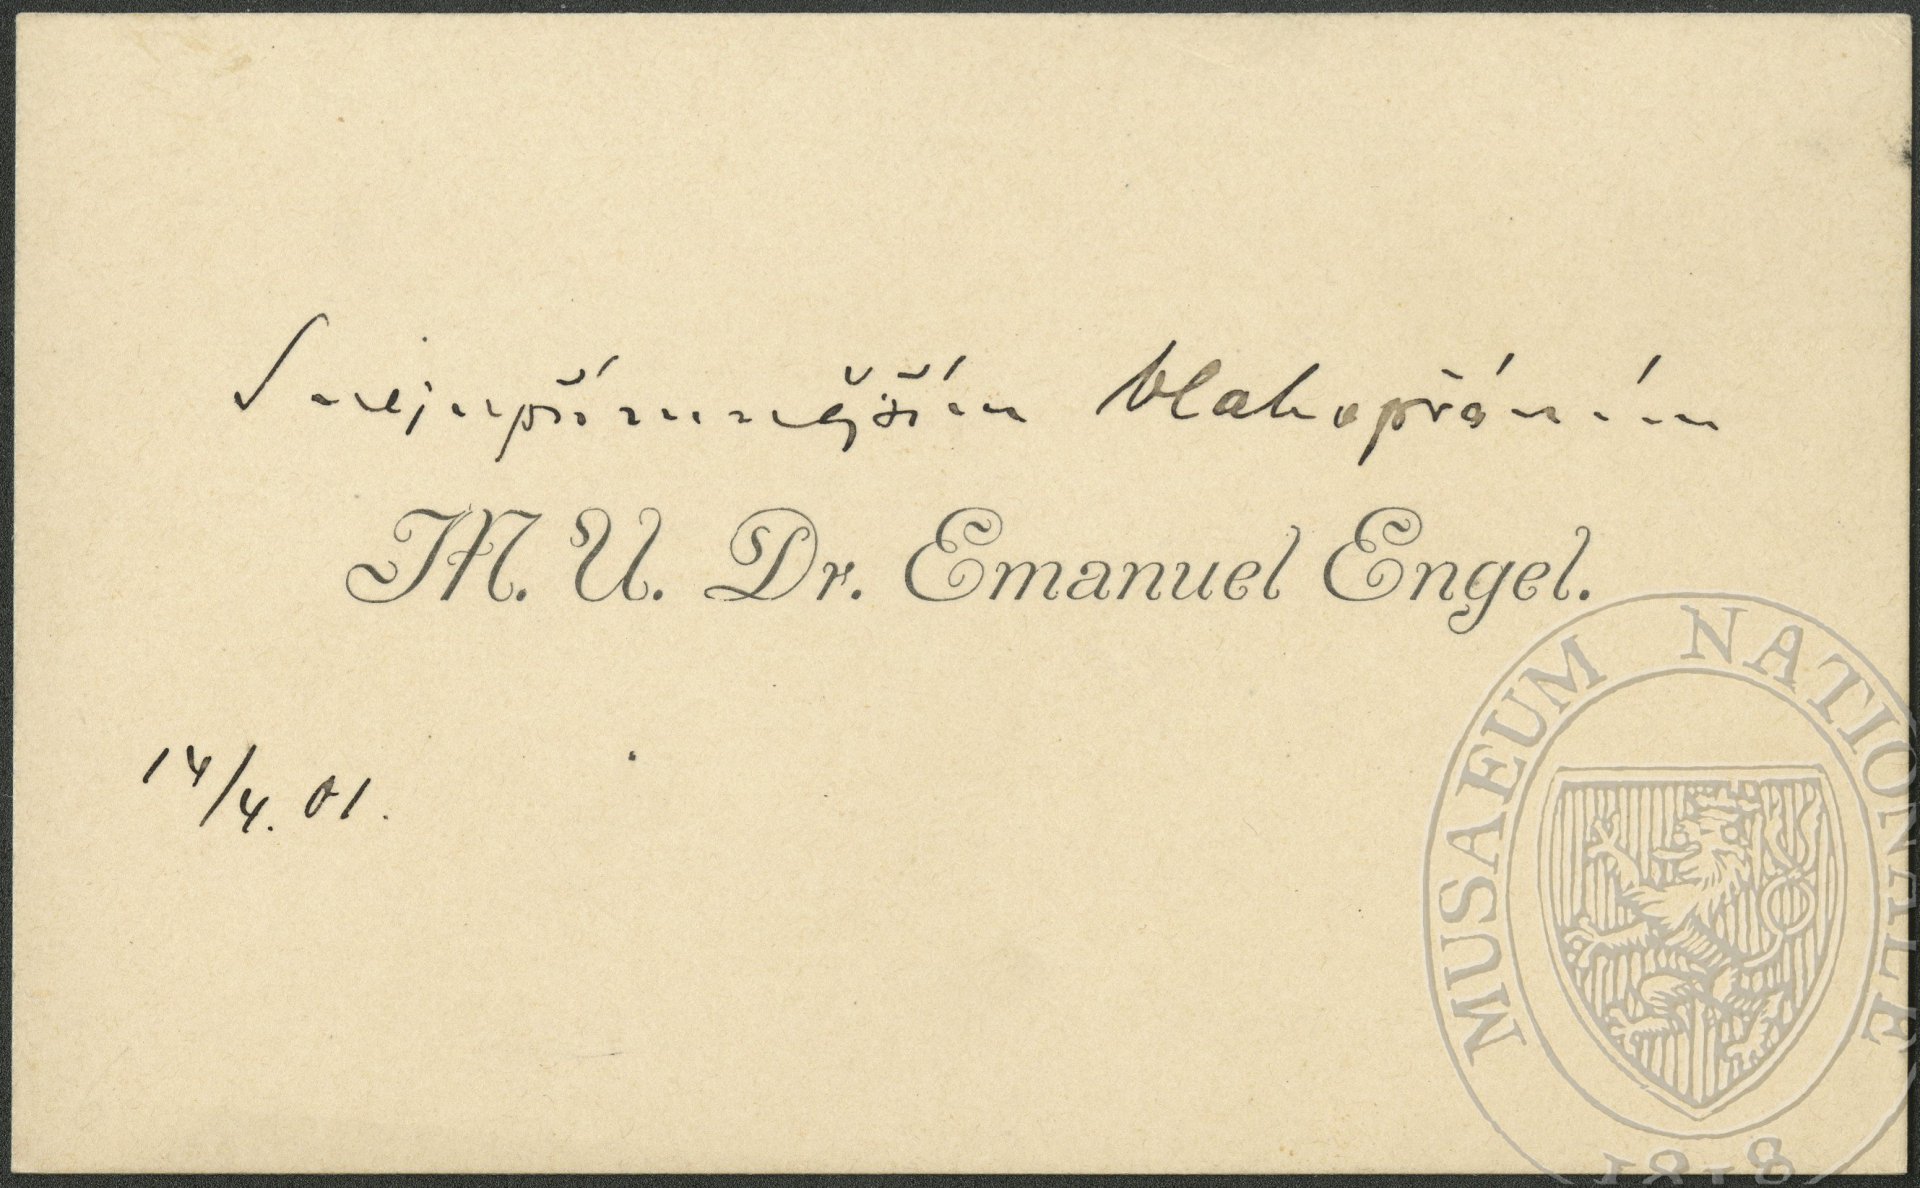 S nejupřímnějším blahopřáním
M. U. Dr. Emanuel Engel.
14/4. 01.
MUSAEUM NATIONALE
1818